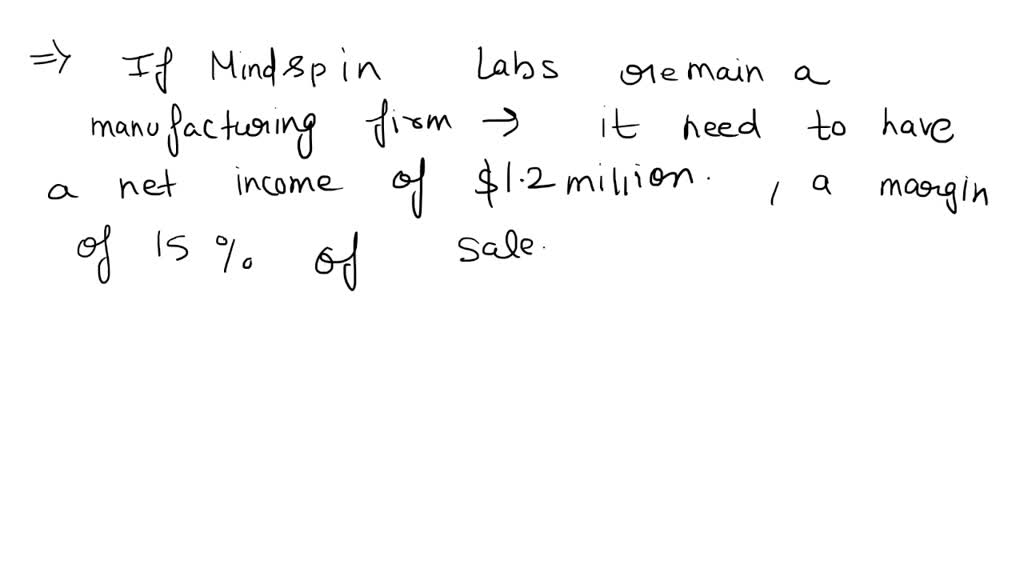 ⇒ If Mindspin Labs remain a
manufacturing firm → it need to have
a net income of $1.2 million. , a margin
of 15 % of sale.